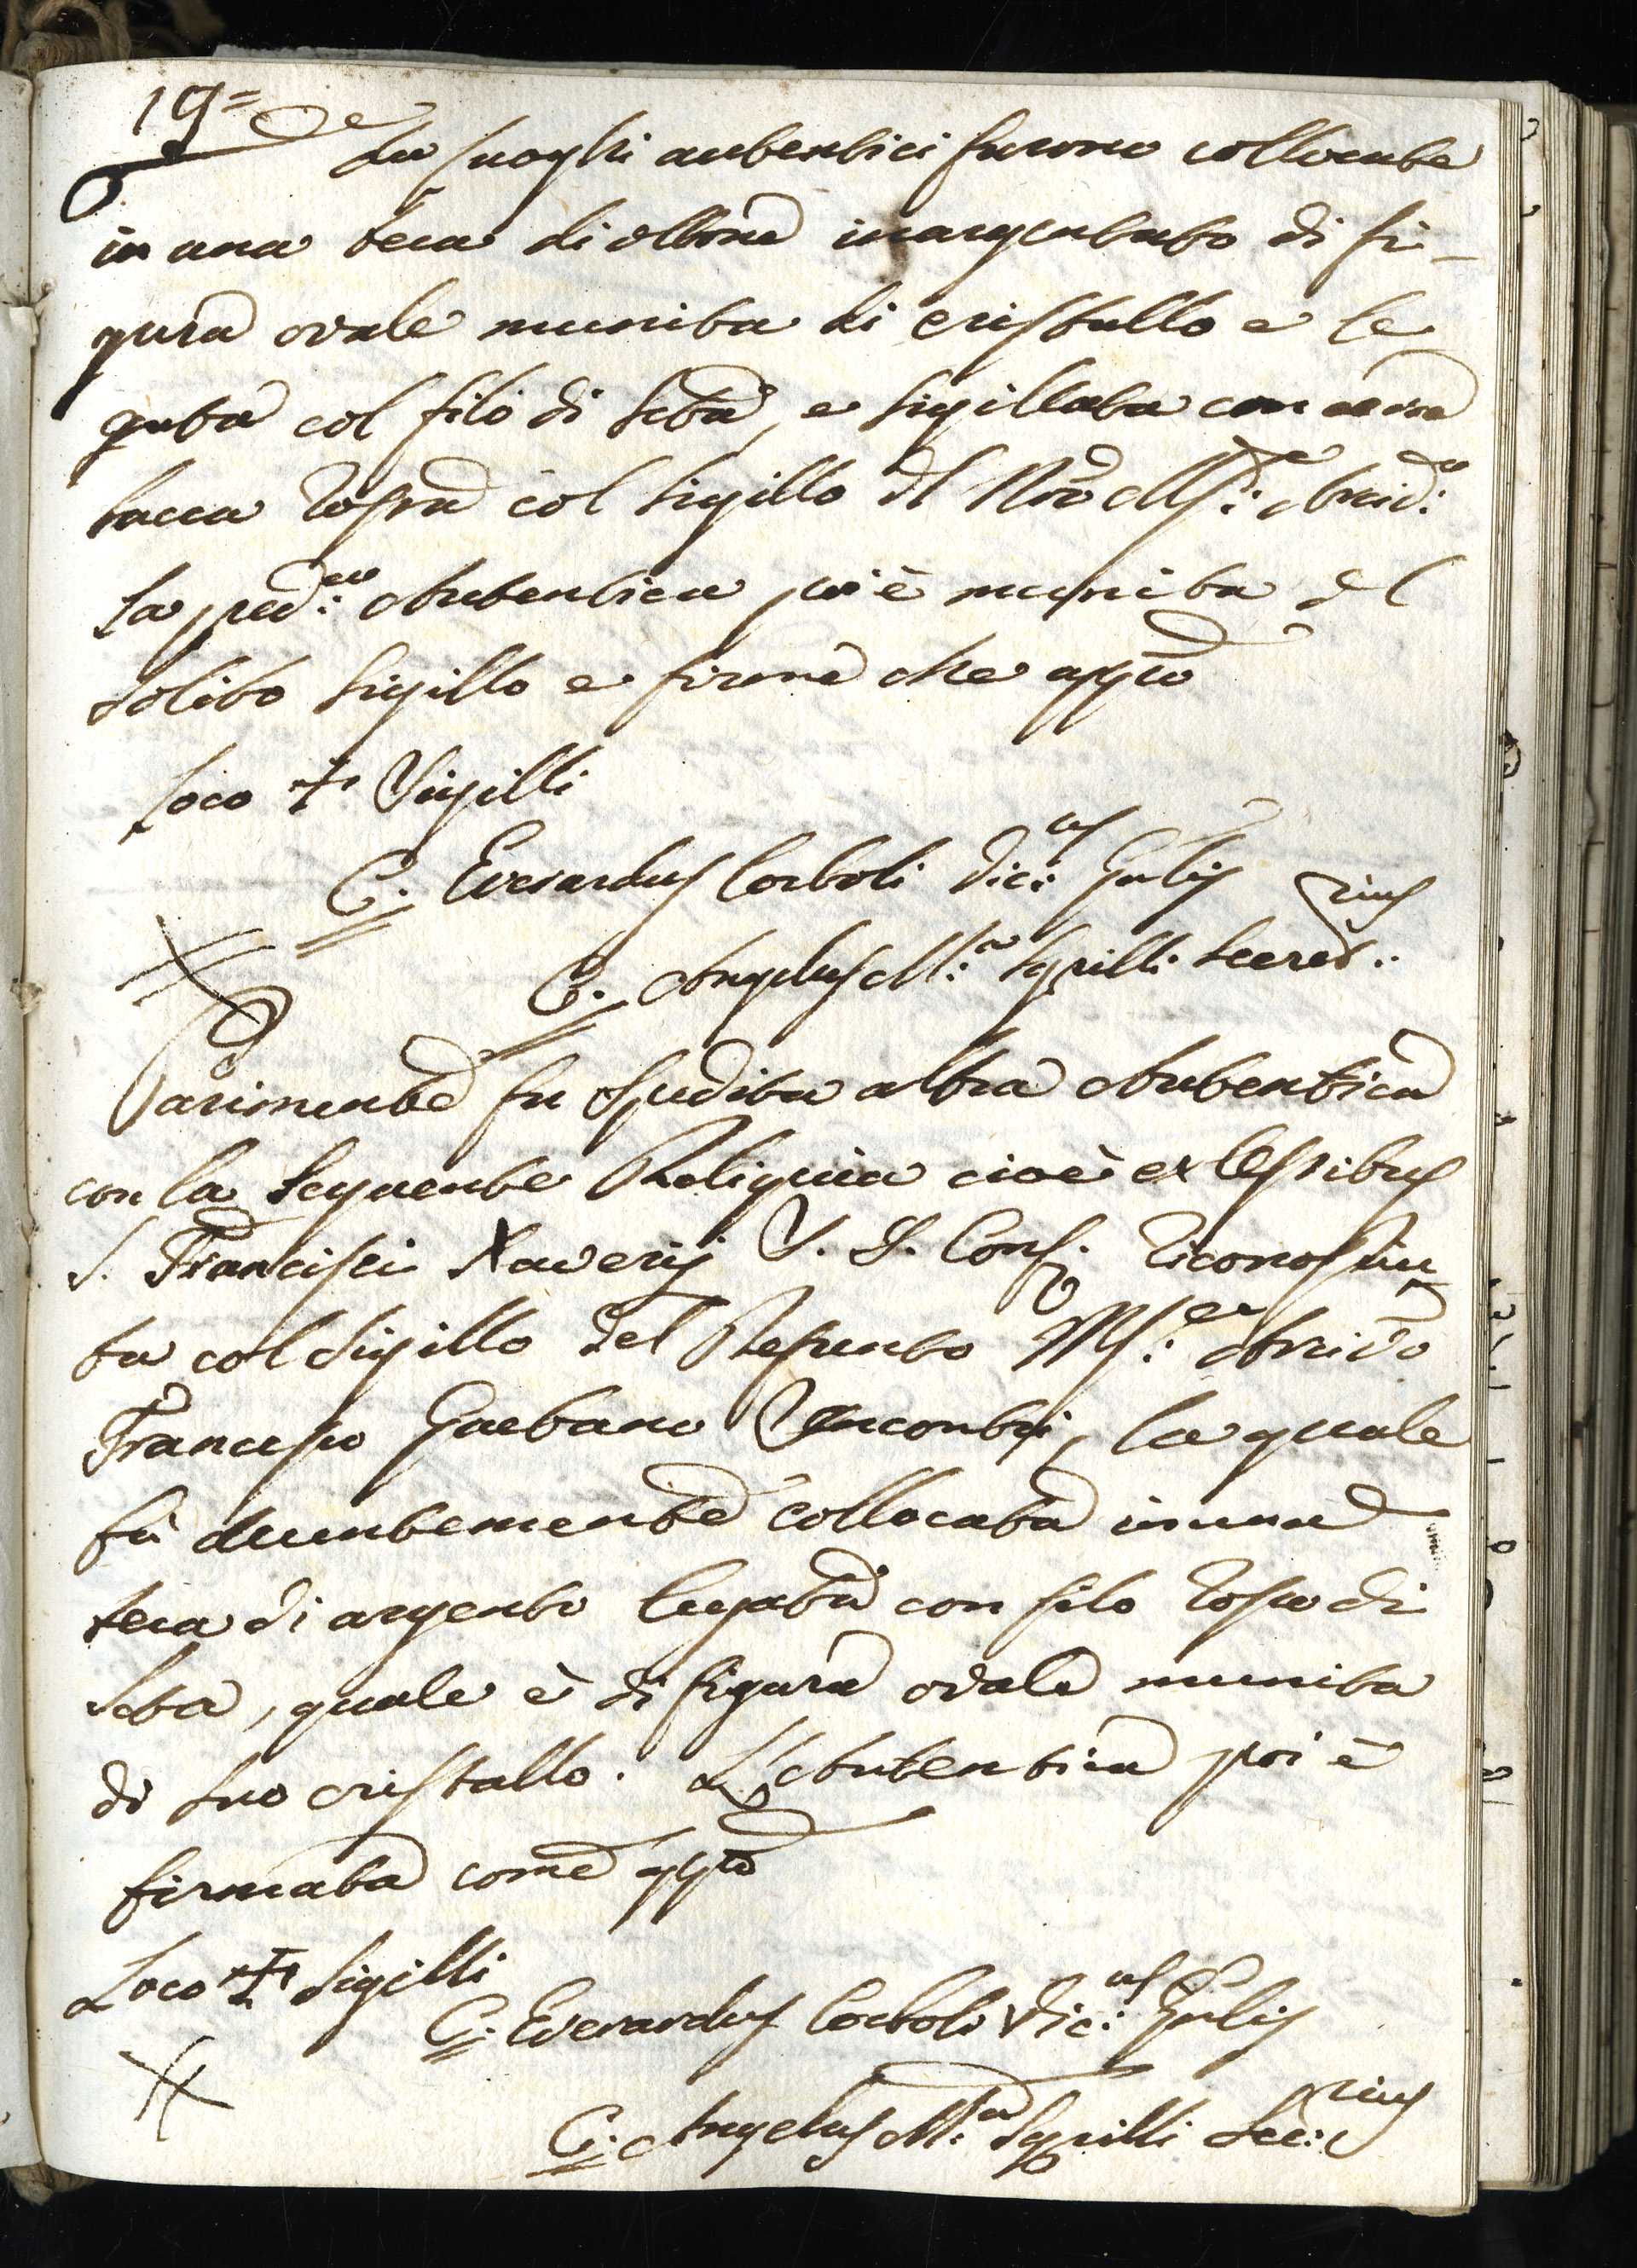 19=
Da luoghi autentici furono collocate
in una teca di ottone inargentato di fi-
gura ovale munita di cristallo e le
gata col filo di seta, e sigillata con cera
lacca rossa col sigillo del Nro Mr: Arcid:
La pred: Autentica poi è munita del
solito sigillo e firme che appo
Loco + Sigilli
C. Everardus Corboli Vic:us Gnlis
C. Angelus M:a Sgrilli Secret:rius
Parimente fu spedita altra Autentica
con la seguente Reliquia cioè ex Ossibus
S. Francisci Xaverij S. I. Conf. riconosciu
ta col sigillo del Defunto Mr: Arcido
Francesco Gaetano Incontri, la quale
fù decentemente collocata in una
teca di argento legata con filo rosso di
seta, quale è di figura ovale munita
di suo cristallo. L'Autentica poi è
firmata come appo
Loco + Sigilli
C. Everardus Corboli Vic:us Gnlis
C. Angelus M:a Sgrilli Sec:rius